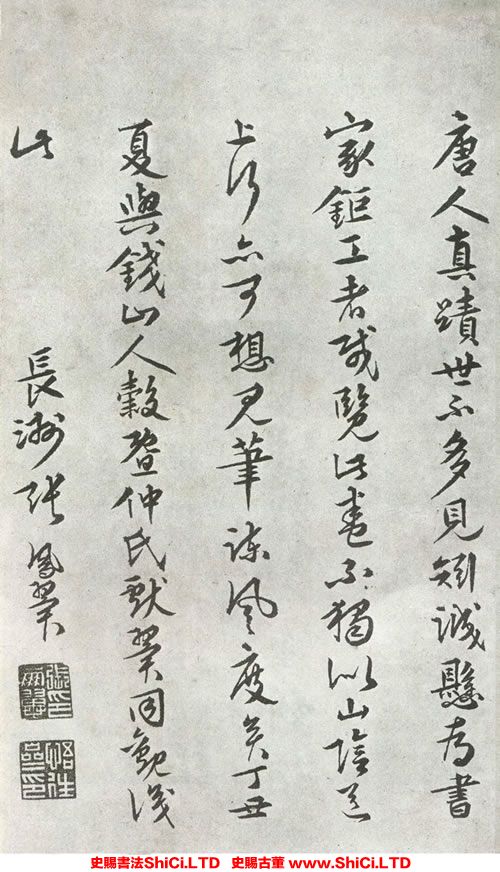 唐人真蹟世不多見矧誠懸為書
家鉅工者哉覽此卷不獨似山陰道
上行亦可想見筆諫風度矣丁丑
夏與錢山人穀暨仲氏獻翼同觀識
此
長洲張鳳翼
史賜書法ShiCi.LTD 史賜古董 www.ShiCi.LTD